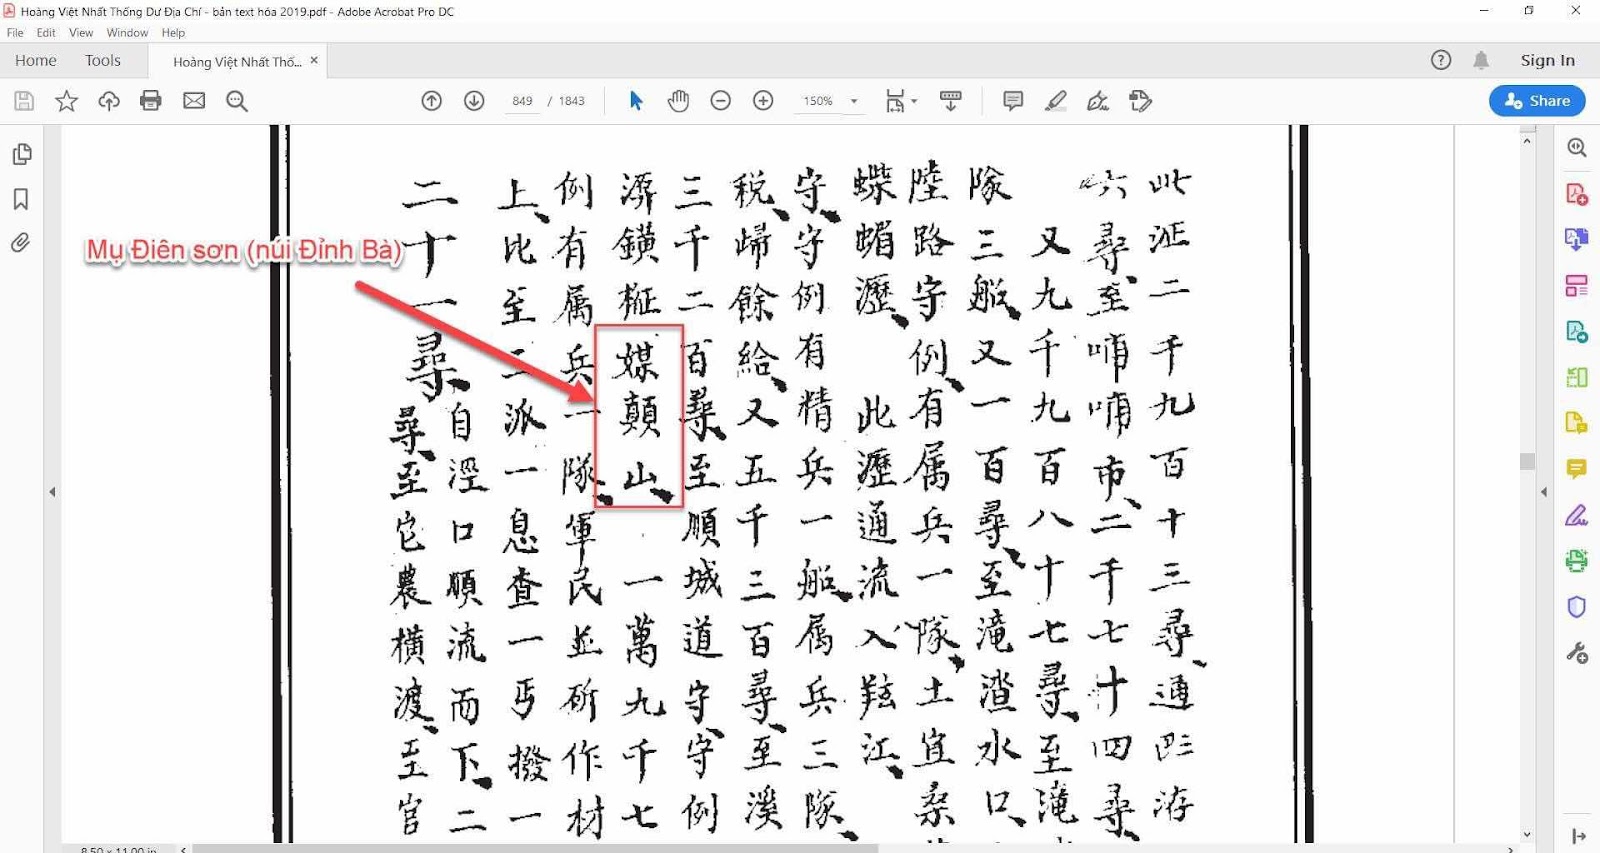 Hoàng Việt Nhất Thống Dư Địa Chí - bản text hóa 2019.pdf - Adobe Acrobat Pro DC
File Edit View Window Help
Home Tools Hoàng Việt Nhất Thố... × Sign In
849 / 1843 150% Share
Mụ Điên sơn (núi Đỉnh Bà)
此涯二千九百十三尋通游
六尋至哺哺市二千七十四尋
又九千九百八十七尋至滝
隊三船又一百尋至滝渣水口
陸路守例有属兵一隊土宜
蝶蝞瀝此瀝通流入羝江
守守例有精兵一船属兵三隊
税歸餘給又五千三百尋至溪
三千二百尋至順城道守守例
漭鐄椏媒顛山一萬九千七
例有属兵一隊軍民並斫作材
上比至二派一息查一丐撥一
二十一尋自涇口順流而下二
尋至它農橫渡至官
8.50 x 11.00 in